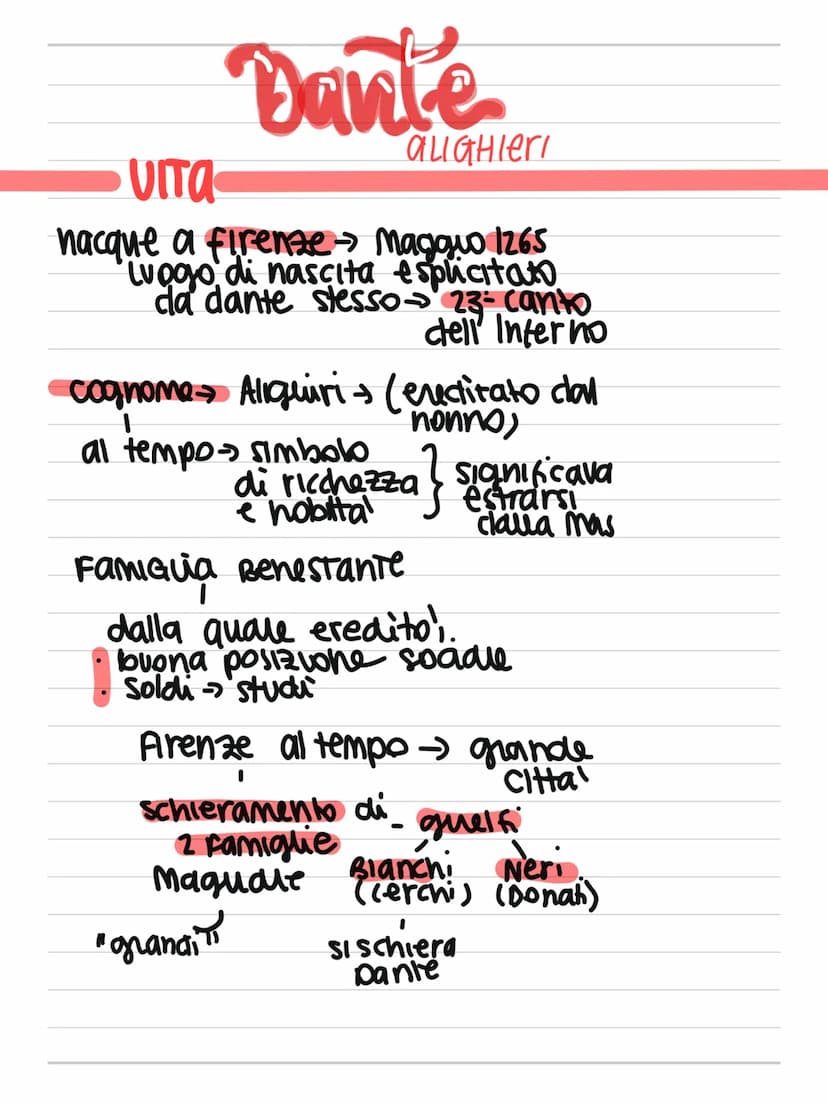 Dante
ALIGHIERI
VITA
nacque a Firenze → Maggio 1265
luogo di nascita esplicitato
da dante stesso → 23° canto
dell' Inferno
cognome → Alighiri → (ereditato dal
nonno)
al tempo → simbolo
di ricchezza } significava
e nobiltà estrarsi
dalla mas
FAMIGLIA BENESTANTE
dalla quale eredito':
· buona posizione sociale
· soldi → studi
Firenze al tempo → grande
citta'
schieramento di - guelfi
2 famiglie Bianchi Neri
Magnate (Cerchi) (Donati)
"grandi" si schiera
Dante